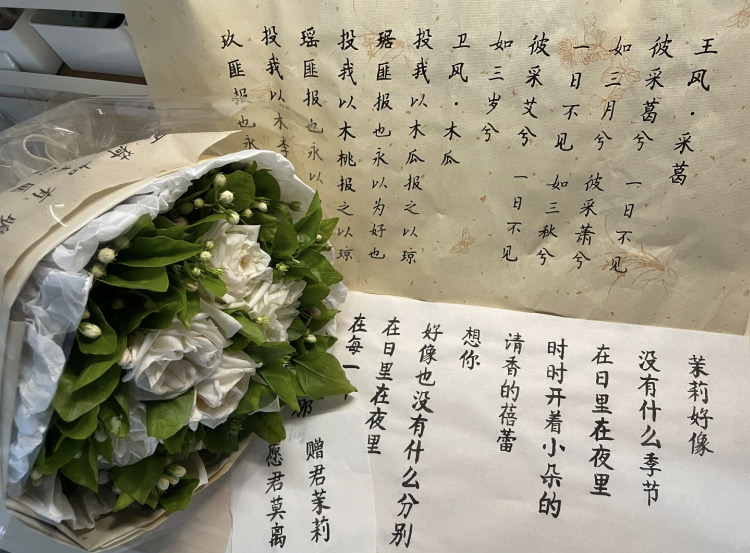 王风·采葛
彼采葛兮 一日不见
如三月兮 彼采萧兮
一日不见 如三秋兮
彼采艾兮 一日不见
如三岁兮
卫风·木瓜
投我以木瓜报之以琼
琚匪报也永以为好也
投我以木桃报之以琼
瑶匪报也永以
投我以木李
玖匪报也永
茉莉好像
没有什么季节
在日里在夜里
时时开着小朵的
清香的蓓蕾
想你
好像也没有什么分别
在日里在夜里
在每一
赠君茉莉
愿君莫离